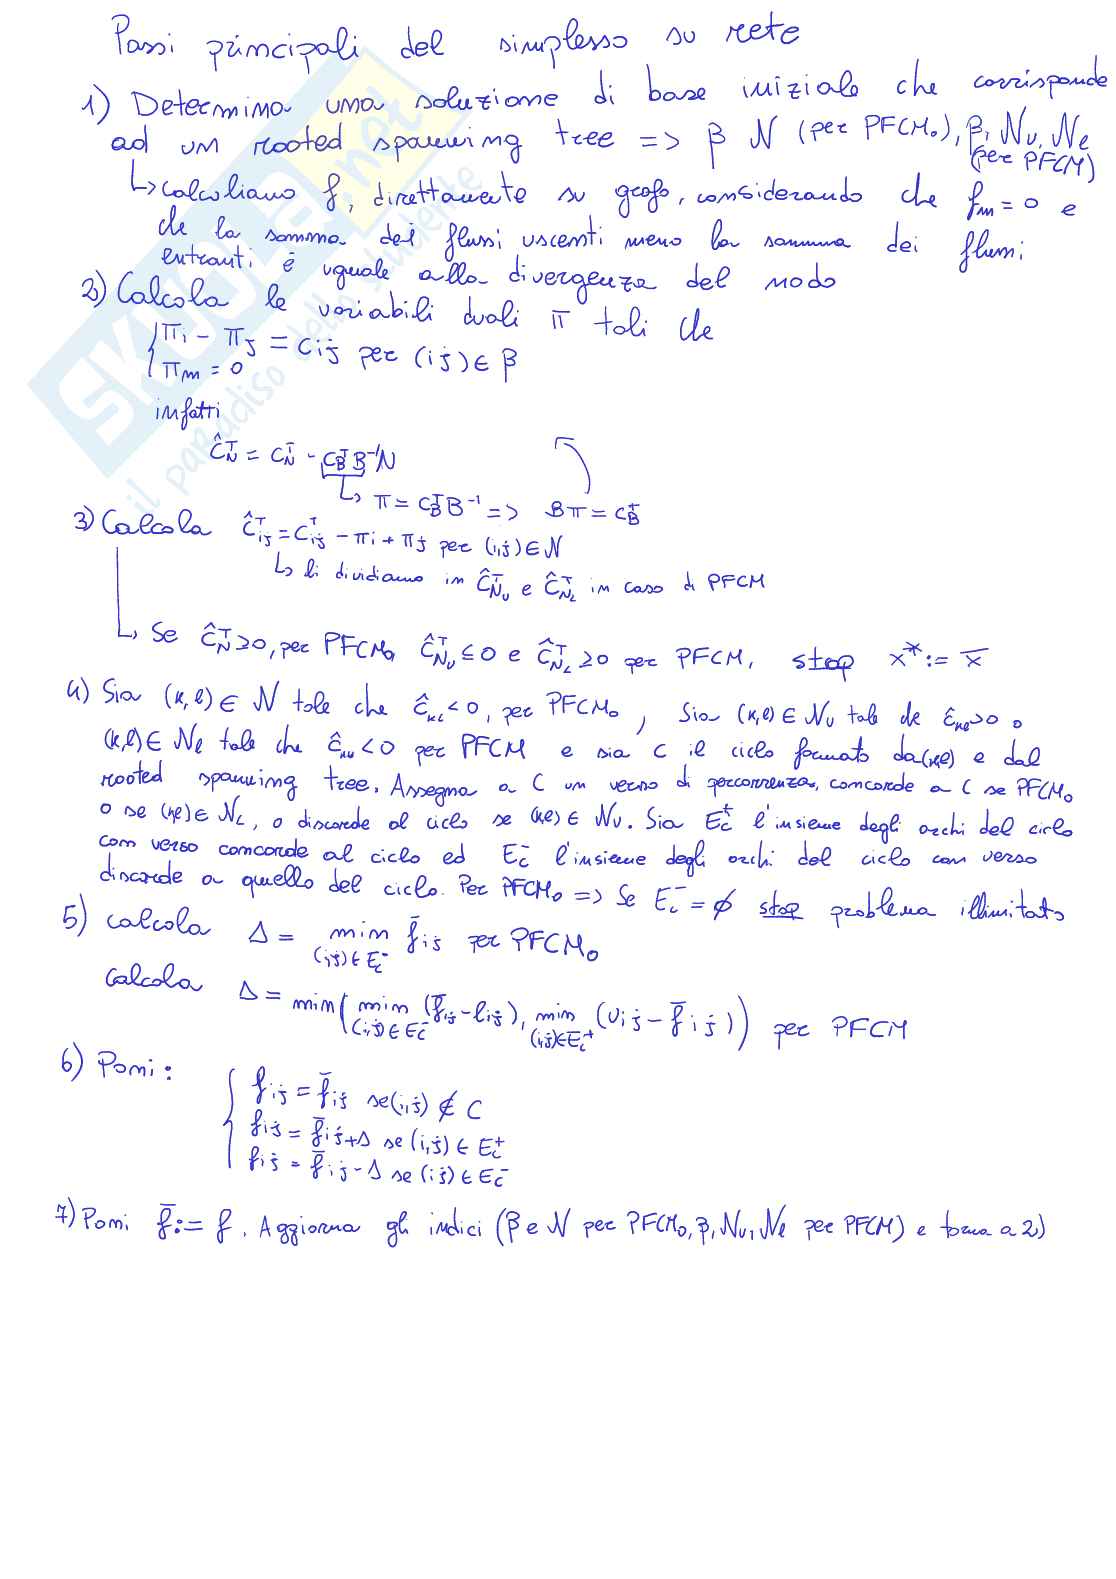 Passi principali del simplesso su rete
1) Determina una soluzione di base iniziale che corrisponde
ad un rooted spanning tree => β N (per PFCM₀), β, Nᵤ, Nₑ
(per PFCM)
↳ calcoliamo f, direttamente su grafo, considerando che fₘ = 0 e
che la somma dei flussi uscenti meno la somma dei flussi
entranti è uguale alla divergenza del nodo
2) Calcola le variabili duali π tali che
{ πi - πj = cij per (i,j) ∈ β
πm = 0
infatti
ĉ_N^T = c_N^T - c_B^T B⁻¹N
↳ π = c_B^T B⁻¹ => Bπ = c_B^T
3) Calcola ĉ_ij^T = c_ij^T - πi + πj per (i,j) ∈ N
↳ li dividiamo in ĉ_Nu^T e ĉ_NL^T in caso di PFCM
↳ Se ĉ_N^T ≥ 0, per PFCM₀ ĉ_Nu^T ≤ 0 e ĉ_NL^T ≥ 0 per PFCM, stop x* := x̅
4) Sia (k,l) ∈ N tale che ĉ_kl < 0, per PFCM₀, Sia (k,l) ∈ Nu tale che ĉ_kl > 0 o
(k,l) ∈ Nl tale che ĉ_kl < 0 per PFCM e sia C il ciclo formato da (k,l) e dal
rooted spanning tree. Assegna a C un verso di percorrenza, concorde a C se PFCM₀
o se (k,l) ∈ N_L, o discorde al ciclo se (k,l) ∈ Nu. Sia E_c⁺ l'insieme degli archi del ciclo
con verso concorde al ciclo ed E_c⁻ l'insieme degli archi del ciclo con verso
discorde a quello del ciclo. Per PFCM₀ => Se E_c⁻ = ∅ stop problema illimitato
5) calcola Δ = min f̅ij per PFCM₀
(i,j) ∈ E_c⁻
calcola Δ = min( min (f̅ij - lij), min (uij - f̅ij)) per PFCM
(i,j) ∈ E_c⁻ (i,j) ∈ E_c⁺
6) Poni: { fij = f̅ij se (i,j) ∉ C
fij = f̅ij + Δ se (i,j) ∈ E_c⁺
fij = f̅ij - Δ se (i,j) ∈ E_c⁻
7) Poni f̅ := f. Aggiorna gli indici (β e N per PFCM₀, β, Nu, Nl per PFCM) e torna a 2)
SKUOLA.net
il paradiso dello studente